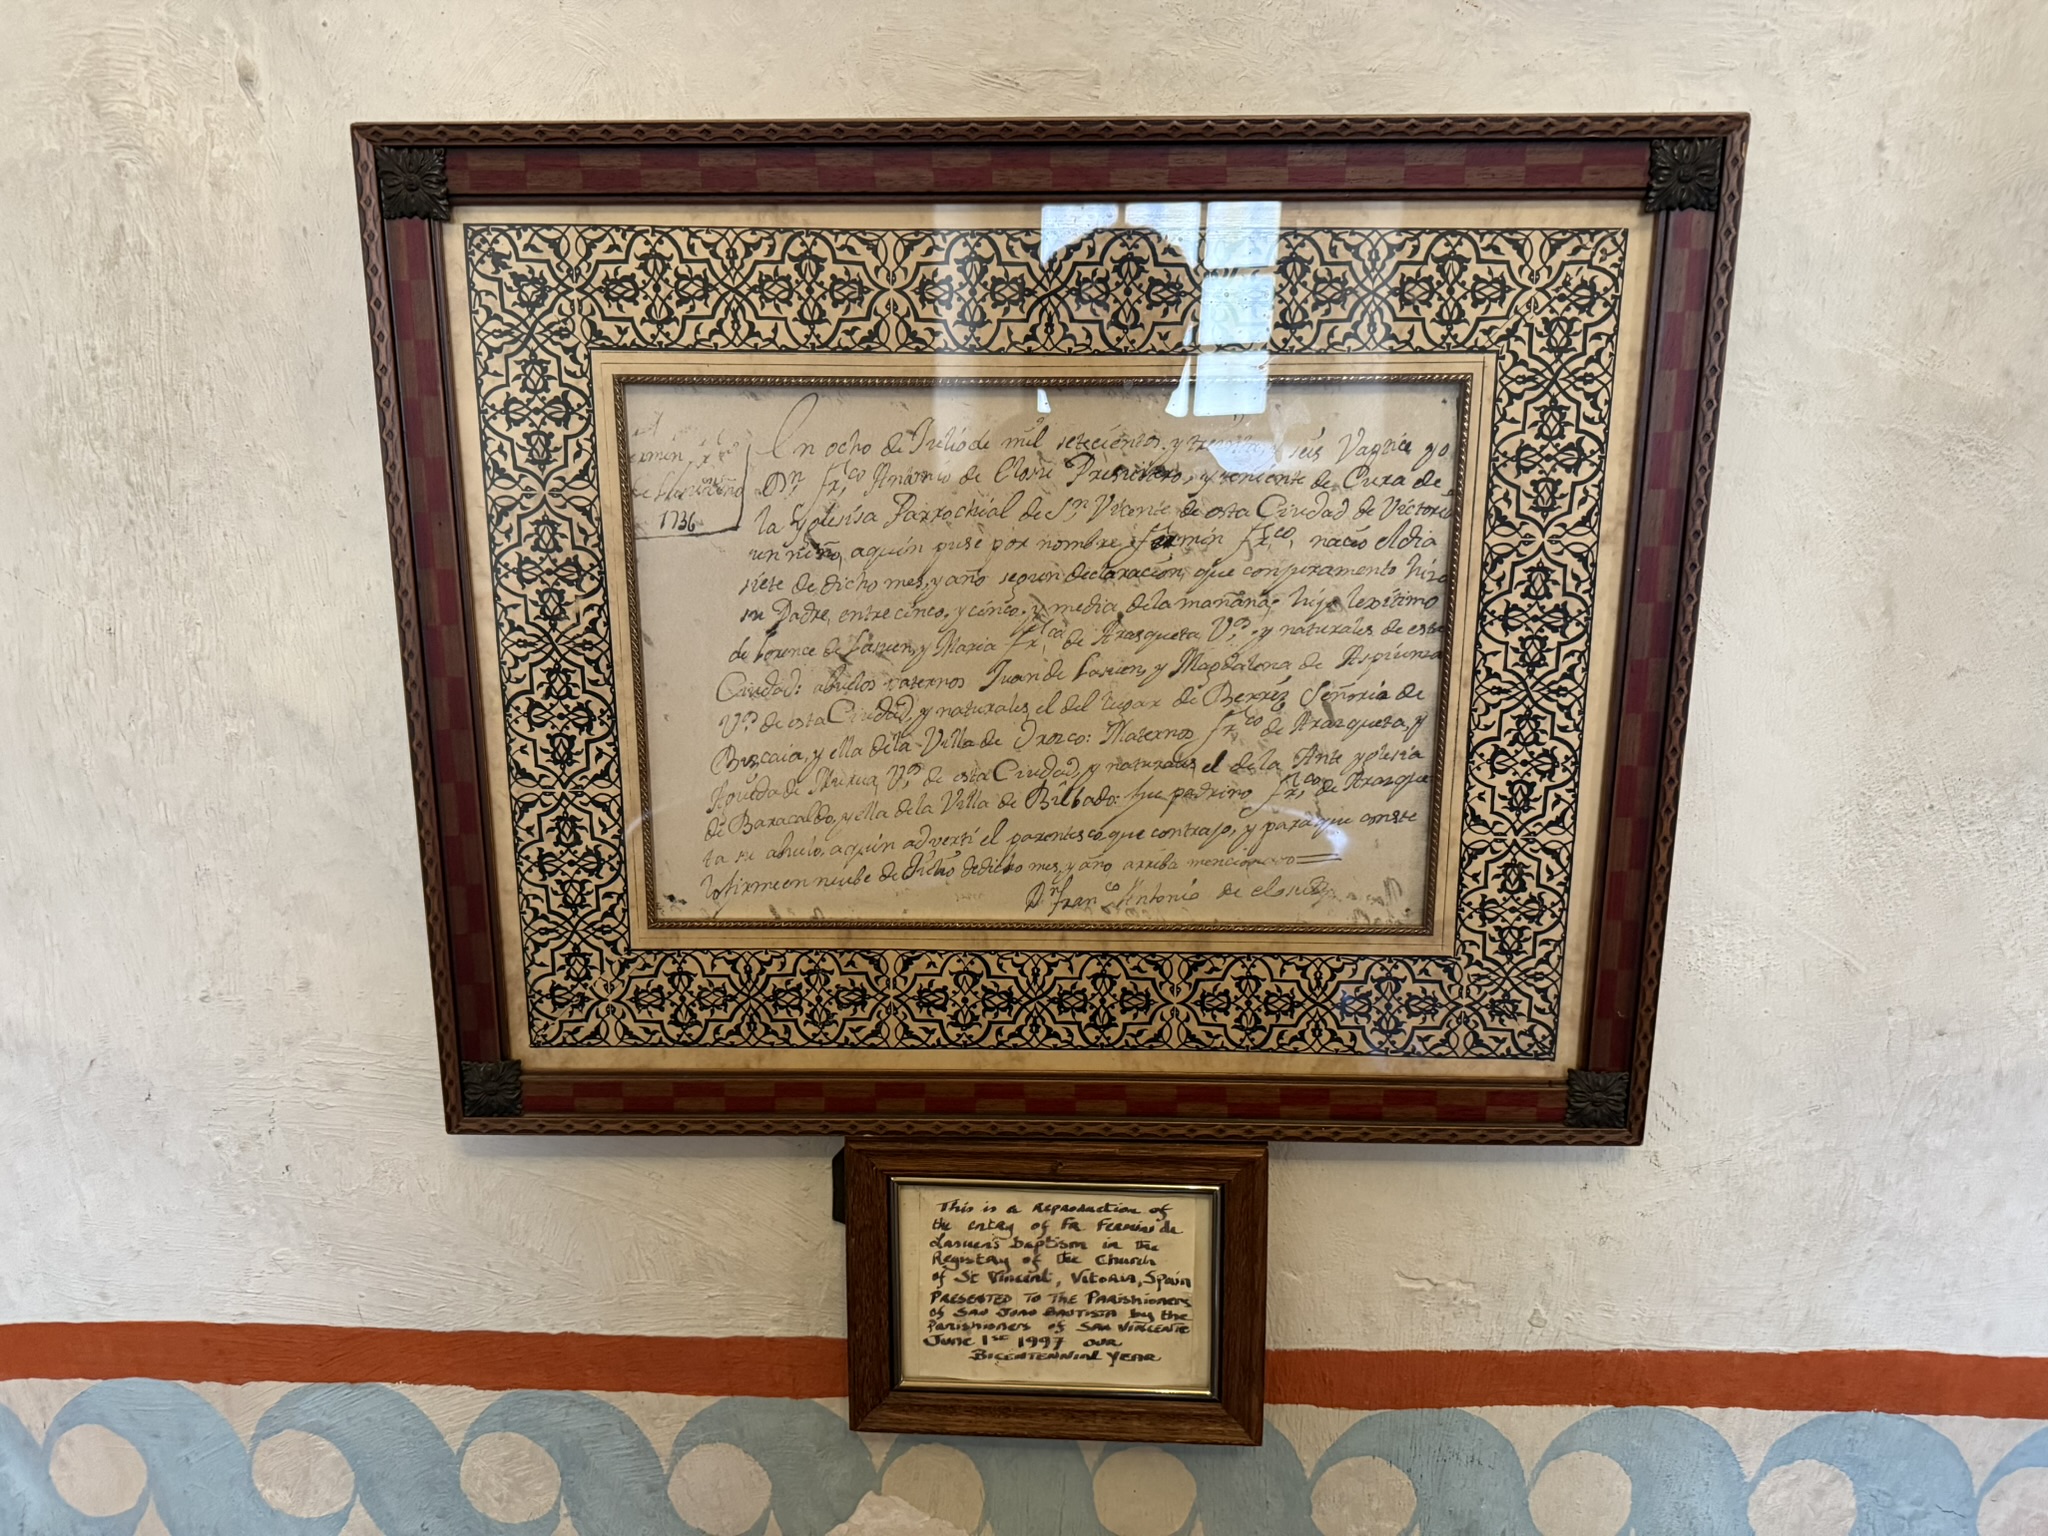 1736
En ocho de Julio de mil setecientos, y treinta, y seis Vaptice yo
Dn. frco Antonio de Presvitero, y teniente de Cura de
la Yglesisa Parrochial de Sn. Vicente de esta Ciudad de Victoria
un niño, aquien puse por nombre fermin frco, nacio el dia
siete de dicho mes, y año segun declaracion, que con juramento hizo
su Padre, entre cinco, y cinco, y media de la mañana, hijo lexitimo
de Lorence de Lasuen, y Maria frca de Arasqueta Vos. y naturales de esta
Ciudad: abuelos paternos Juan de Lasuen, y Magdalena de
Vos de esta Ciudad, y naturales, el del lugar de Berriz Señoria de
Biscaia, y ella de la Villa de Orozco: Maternos frco de Arasqueta, y
Agueda de Vos de esta Ciudad, y naturales el de la Ante yglesia
de Baracaldo, y ella de la Villa de Bilbao: fue padrino frco de Arasque
ta su abuelo, aquien adverti el parentesco, que contrajo, y para que conste
lo firme en nuebe de Julio de dicho mes, y año arriba mencionado
Dn. Franco Antonio de
This is a reproduction of
the entry of Fr Fermin de
Lasuen's baptism in the
Registry of the Church
of St Vincent, Vitoria, Spain
PRESENTED TO THE PARISHIONERS
of San Juan Bautista by the
Parishioners of San Vincente
June 1st 1997 our
Bicentennial Year